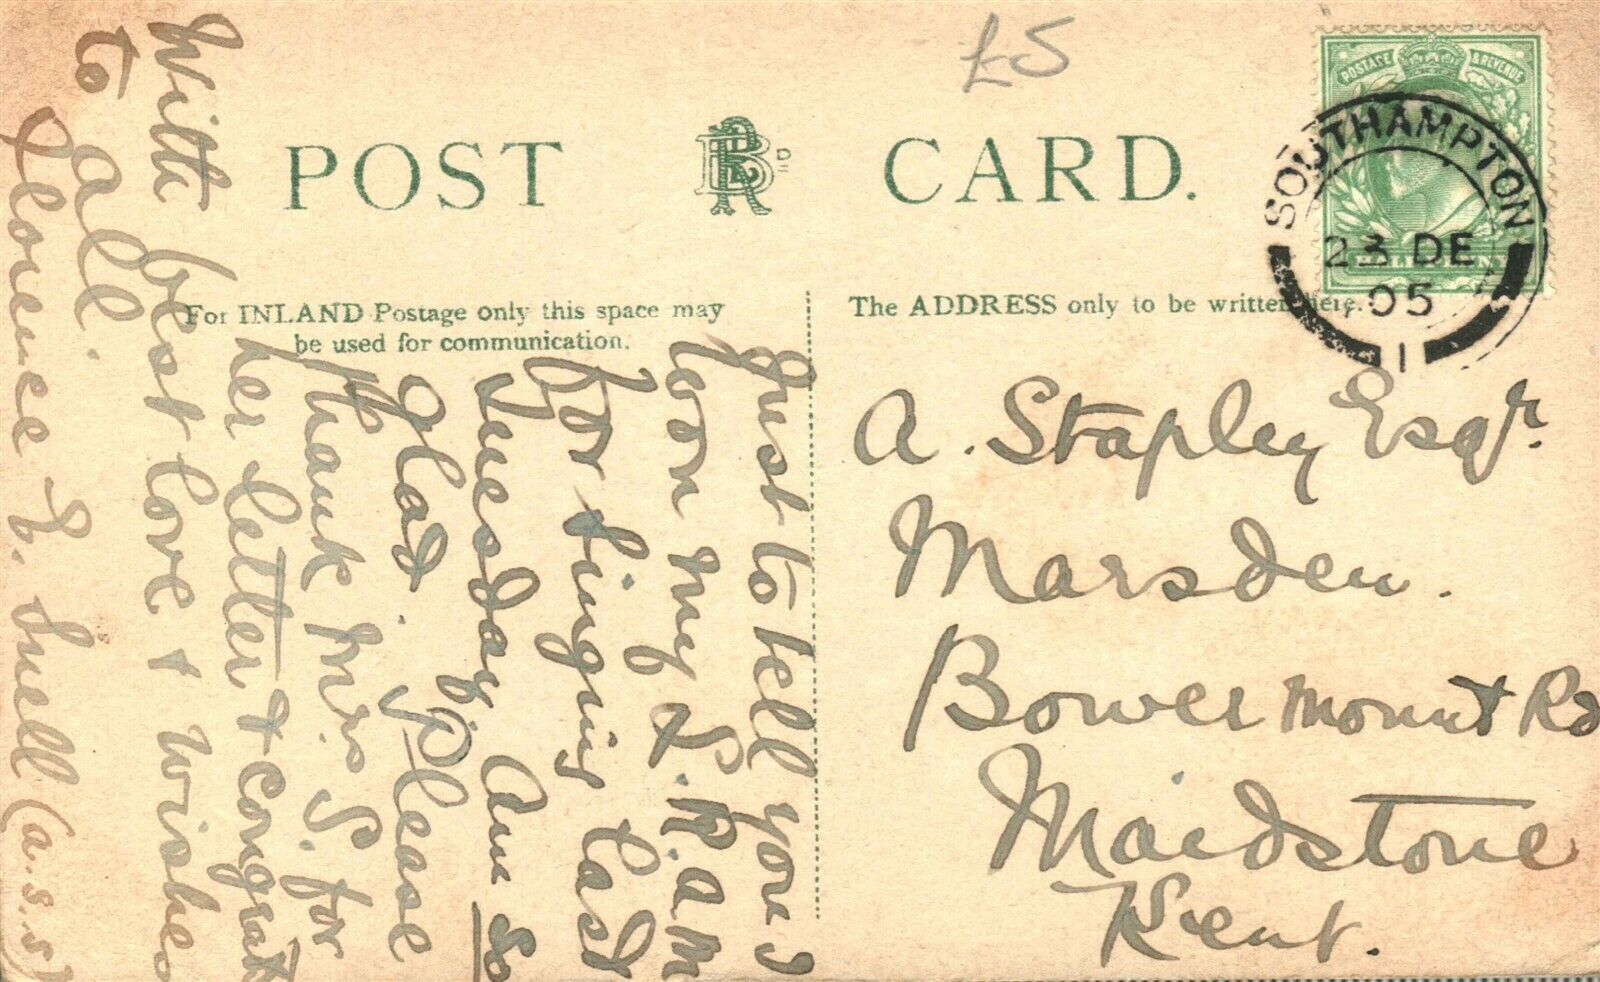 £5
POST CARD.
POSTAGE & REVENUE
SOUTHAMPTON
23 DE
05
1
For INLAND Postage only this space may
be used for communication.
The ADDRESS only to be written here.
A. Stapley Esqr.
Marsden.
Bower Mount Rd
Maidstone
Kent.
Just to tell you I
won my L.R.A.M
for singing last
Tuesday. Am so
glad. Please
thank Mrs S. for
her letter & congrats
With best love & wishes
to all.
Florence E. Snell (a.s.s)